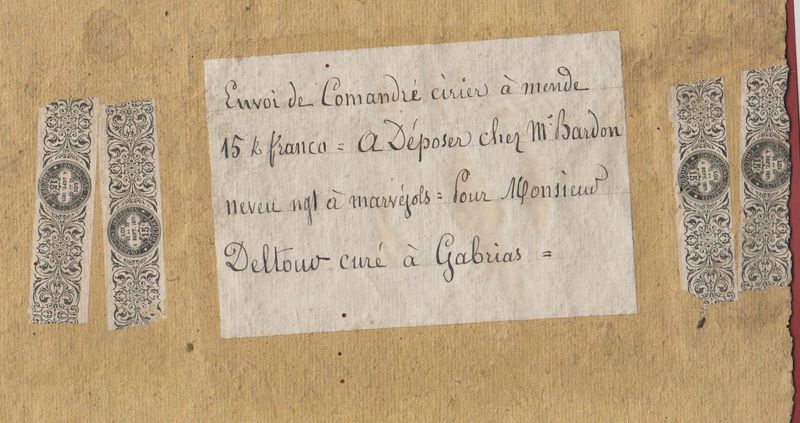 Envoi de Comandré cirier à mende
15 k franco = A Déposer chez Mr Bardon
neveu ngt à marvéjols = Pour Monsieur
Deltour curé à Gabrias =